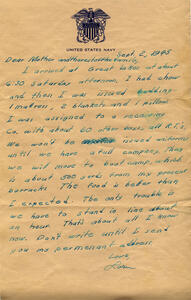 UNITED STATES NAVY
Sept. 2, 1945
Dear Mother and the rest of the family,
I arrived at Great Lakes at
6:30 Saturday afternoon, I had chow
and then I was issued bedding
1 matress, 2 blankets and 1 pillow
I was assigned to a receiving
Co. with about 60 other boxes, all R.T.'s
We won't be issued uniforms
until we have a full company. Then
we will move to boot camp, which
is about 500 yards from my present
barracks. The food is better than
I expected. The only trouble is
we have to stand in line about
an hour. That's about all I know
now. Don't write until I send
you my permenant address.
Love,